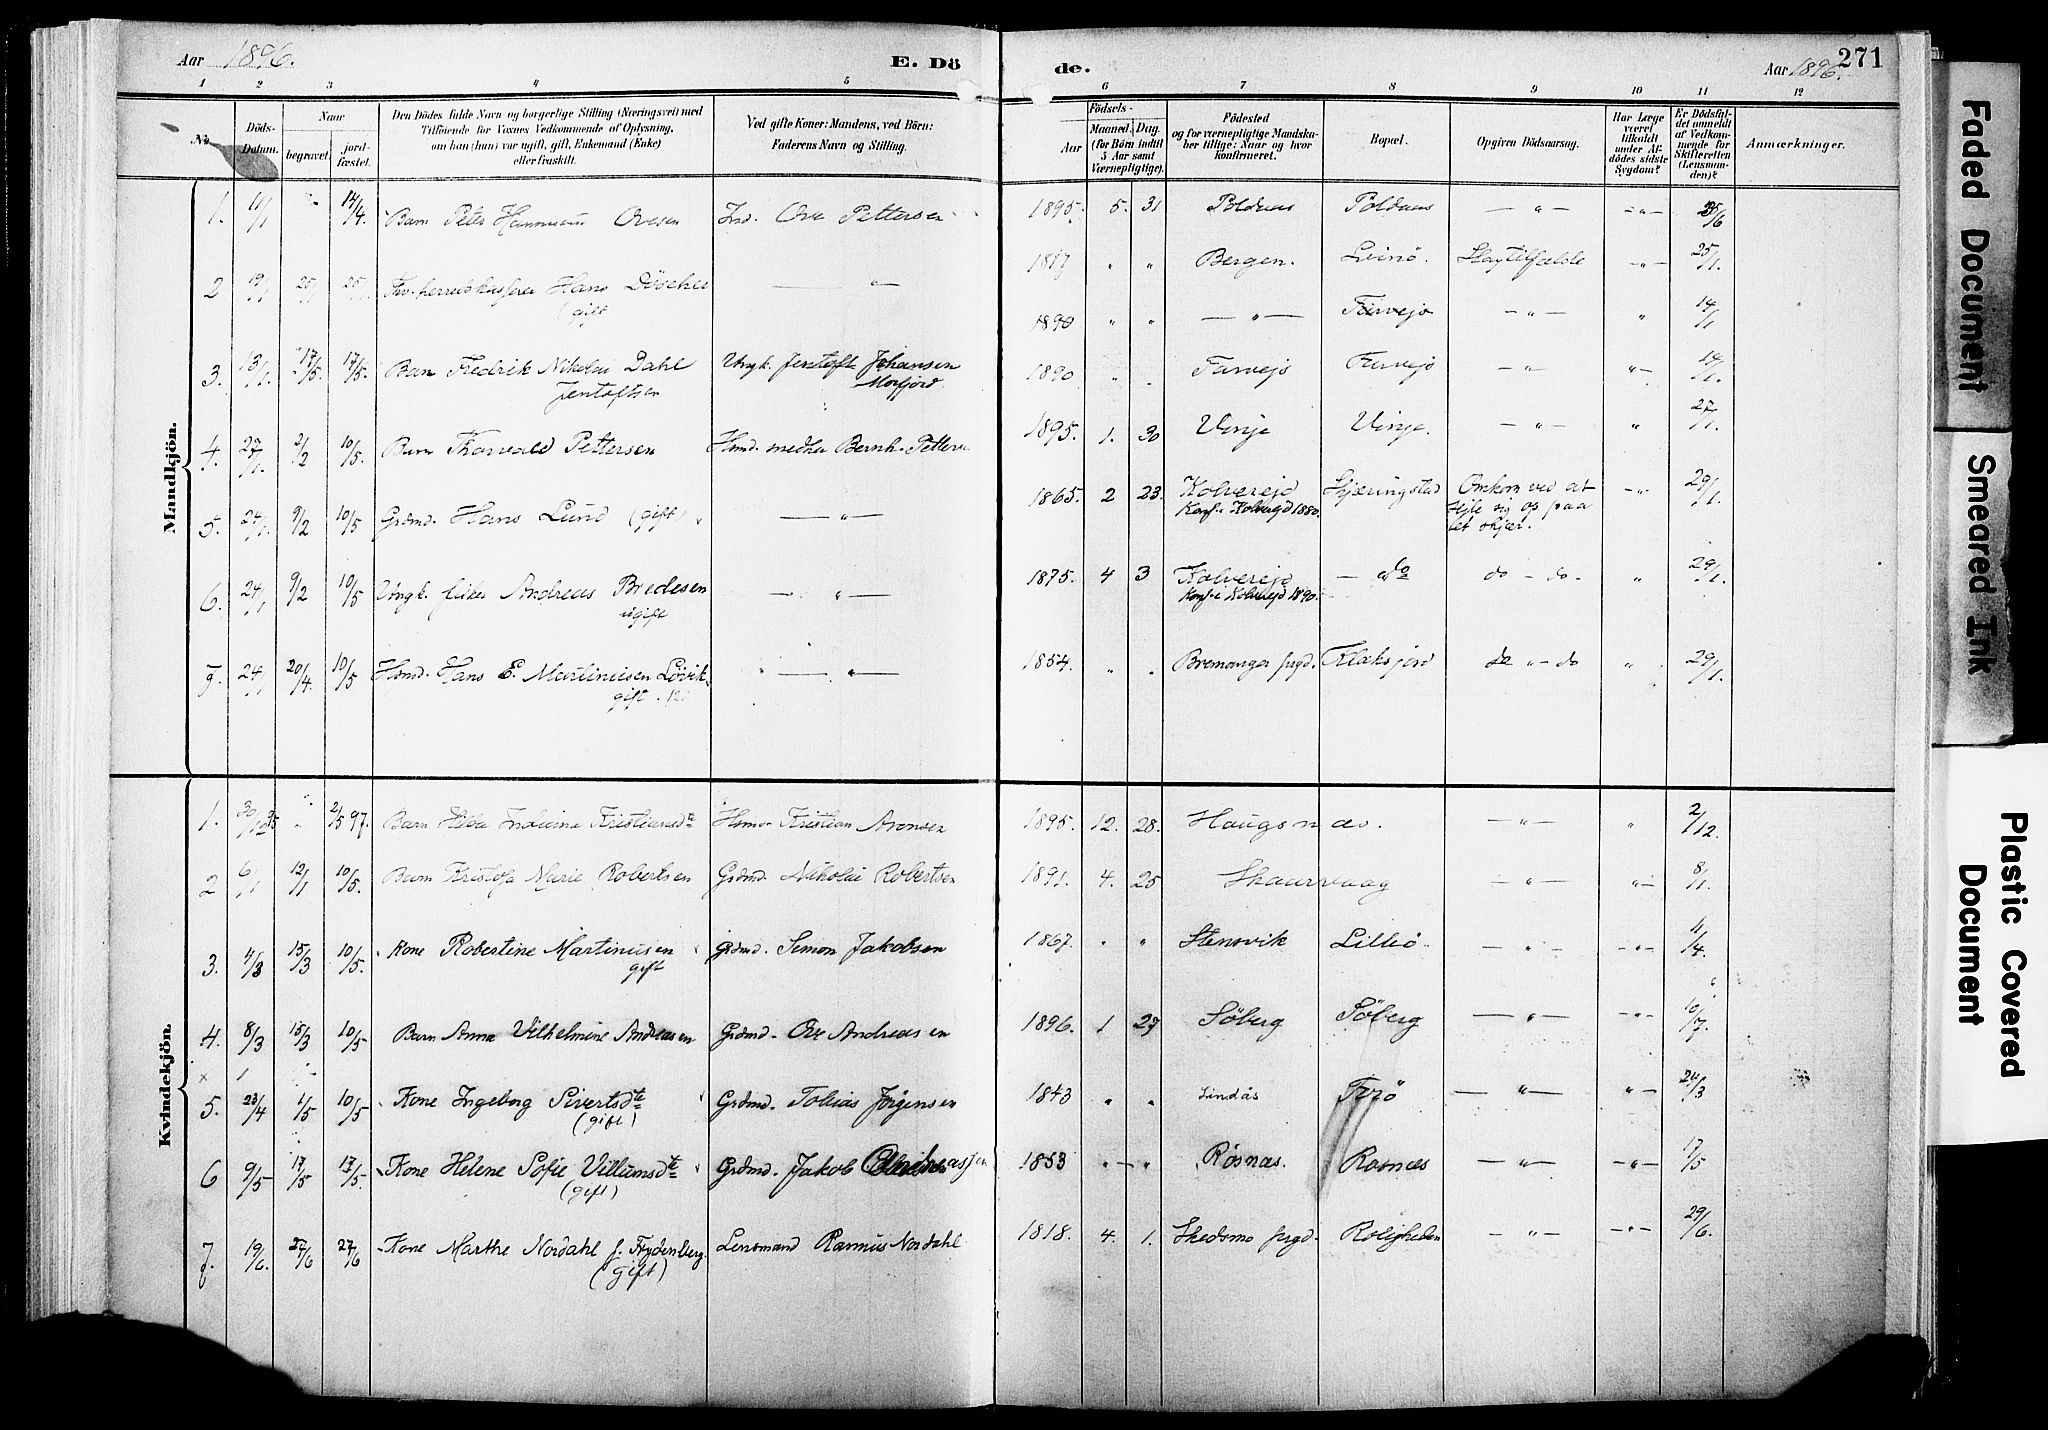 Aar 1896. E. Dö
1 2 3 4 5
No
Döds-Datum.
Naar
begravet. jord-fæstet.
Den Dödes fulde Navn og borgerlige Stilling (Næringsvei) med
Tilföiende for Voxnes Vedkommende af Oplysning,
om han (hun) var ugift, gift, Enkemand (Enke)
eller fraskilt.
Ved gifte Koner: Mandens, ved Börn:
Faderens Navn og Stilling.
Mandkjön.
1. 11/1 " 14/4. Barn Peter Ovesen Ind. Ove Pettersen
2 19/1 25/1 25/1 Hans Döscher — " —
(gift
3. 13/1. 17/5. 17/5. Barn Fredrik Nikolai Dahl Ungk. Jentoft Johansen
Jentoftsen Morfjord
4. 27/1. 2/2 10/5. Barn Thorvald Pettersen Bernh. Petters
5. 24/1. 9/2 10/5 Grdmd. Hans Lund (gift) — " —
6. 24/1 9/2 10/5 Ungk. fisker Andreas Bredesen — " —
ugift
7. 24/1 20/4. 10/5 Hsmd. Hans E. Martinusen Lövik — " —
gift.
Kvindekjön.
1. 30/12 95 " 2/5 97. Barn Hilda Kristiansdt Hsmd. Kristian Aronsen
2 6/1 12/1 10/5. Barn Kristofa Marie Robertsen Grdmd. Nikolai Robertsen
3. 4/3 15/3 10/5. Kone Robertine Martinusen Grdmd. Simon Jakobsen
gift
4. 8/3 15/3 10/5 Barn Anna Vilhelmine Andreasen Grdmd. Ove Andreasen
5. 23/4 1/5 10/5 Kone Ingeborg Sivertsdte Grdmd. Tobias Jørgensen
(gift)
6 9/5 17/5 17/5. Kone Helene Sofie Villumsdte Grdmd. Jakob
(gift)
7. 19/6. 27/6 27/6 Kone Marthe Nordahl f. Frydenberg. Lensmand Rasmus Nordahl
(gift)
de. Aar 1896. 271
6 7 8 9 10 11 12
Födsels-
Aar Maaned. Dag.
(for Börn indtil
5 Aar samt
Værnepligtige).
Födested
og for værnepligtige Mandska-
ber tillige: Naar og hvor
konfirmeret.
Bopæl.
Opgiven Dödsaarsag.
Har Læge
været
tilkaldt
under Af-
dödes sidste
Sygdom?
Er Dödsfal-
det anmeldt
af Vedkom-
mende for
Skifteretten
(Lensman-
den)?
Anmærkninger.
1895. 5. 31 Poldnes Poldnes — " — — " — 25/6
1817 " " Bergen. Leinö. Slagtilfælde — " — 25/1.
1890 " " — " — Farvejo — " — " 14/1
1890 " . Farvejo Farvejo — " — " — 14/1.
1895. 1. 30 Vinje Vinje. — " — " 27/1.
1865. 2 23. Kolvereid Skjæringstad Omkom ved at — " — 29/1.
Konf. i Kolvereid 1880. seile sig op paa
et skjær.
1875. 4 3 Kolvereid — do do — do — " 29/1.
Konf. i Kolvereid 1890.
1854. " . Bremanger prgd. Flaksjord do " — do " 29/1.
1895. 12. 28. Haugsnæs. — " — " 2/12.
1891. 4. 25 Skaarvaag — " — " — 8/11.
1867. " " Stensvik Lilleö — " — — " — 11/4.
1896. 1 27 Söberg Söberg — " — — " — 10/7.
1843 " " Lindås Terö — " — " — 24/3
1853 " — " Røsnæs. Rosnæs — " — — " — 17/5
1818. 4. 1. Skedsmo prgd. Roligheden — " — — " — 29/6.
Faded Document
Smeared Ink
Plastic Covered
Document